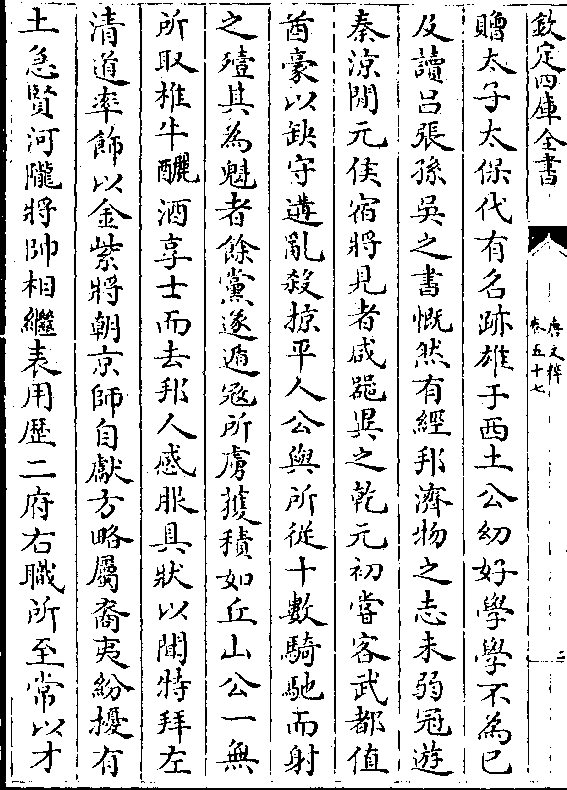 欽定四庫全書
唐文粹
卷五十七
二
贈太子太保代有名跡雄于西土公幼好學學不為已
及讀呂張孫吳之書慨然有經邦濟物之志未弱冠遊
秦涼間元侯宿將見者咸器異之乾元初嘗客武都值
酋豪以缺守遘亂殺掠平人公與所從十數騎馳而射
之殪其為魁者餘黨遂遁冦所虜獲積如丘山公一無
所取椎牛釃酒享士而去邦人感服具狀以聞特拜左
清道率飾以金紫將朝京師自獻方略屬裔夷紛擾有
土急賢河隴將帥相繼表用歷二府右職所至常以才